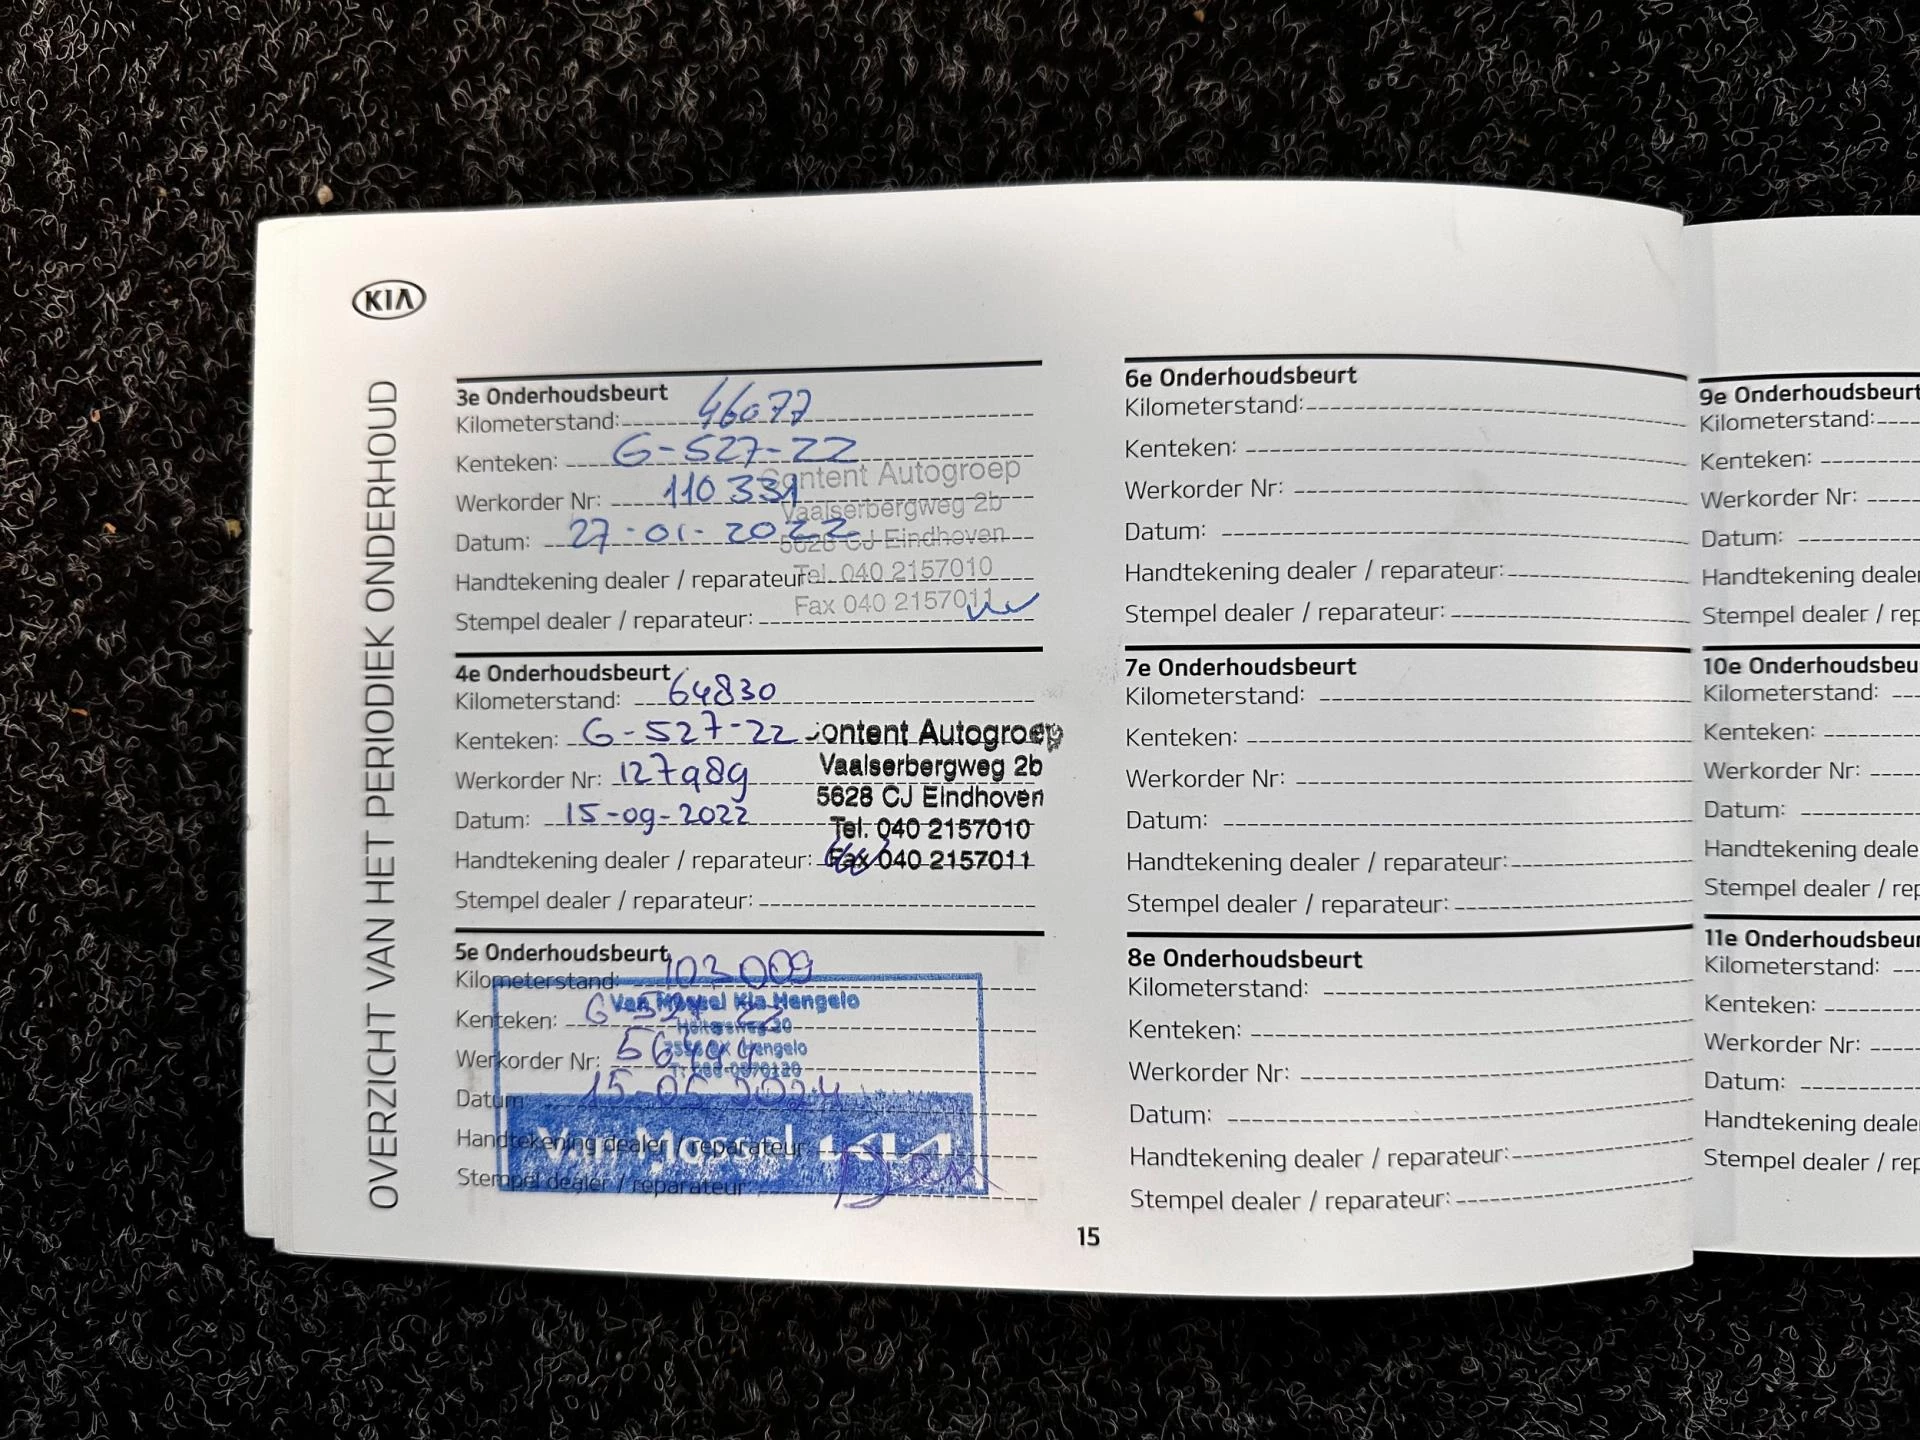 KIA
OVERZICHT VAN HET PERIODIEK ONDERHOUD
3e Onderhoudsbeurt
Kilometerstand: 46077
Kenteken: G-527-ZZ
Werkorder Nr: 110331
Datum: 27-01-2022
Handtekening dealer / reparateur:
Stempel dealer / reparateur:
Content Autogroep
Vaalserbergweg 2b
5628 CJ Eindhoven
Tel. 040 2157010
Fax 040 2157011
4e Onderhoudsbeurt
Kilometerstand: 64830
Kenteken: G-527-ZZ
Werkorder Nr: 127989
Datum: 15-09-2022
Handtekening dealer / reparateur:
Stempel dealer / reparateur:
ontent Autogroep
Vaalserbergweg 2b
5628 CJ Eindhoven
Tel. 040 2157010
Fax 040 2157011
5e Onderhoudsbeurt
Kilometerstand: 103009
Kenteken:
Werkorder Nr:
Datum: 2024
Handtekening dealer / reparateur:
Stempel dealer / reparateur:
Van Mossel Kia Hengelo
Hengelo
Van Mossel KIA
6e Onderhoudsbeurt
Kilometerstand:
Kenteken:
Werkorder Nr:
Datum:
Handtekening dealer / reparateur:
Stempel dealer / reparateur:
7e Onderhoudsbeurt
Kilometerstand:
Kenteken:
Werkorder Nr:
Datum:
Handtekening dealer / reparateur:
Stempel dealer / reparateur:
8e Onderhoudsbeurt
Kilometerstand:
Kenteken:
Werkorder Nr:
Datum:
Handtekening dealer / reparateur:
Stempel dealer / reparateur:
15
9e Onderhoudsbeurt
Kilometerstand:
Kenteken:
Werkorder Nr:
Datum:
Handtekening dealer
Stempel dealer / rep
10e Onderhoudsbeu
Kilometerstand:
Kenteken:
Werkorder Nr:
Datum:
Handtekening deale
Stempel dealer / rep
11e Onderhoudsbeur
Kilometerstand:
Kenteken:
Werkorder Nr:
Datum:
Handtekening dealer
Stempel dealer / rep